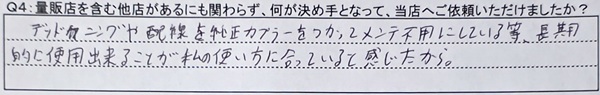 Q4：量販店を含む他店があるにも関わらず、何が決め手となって、当店へご依頼いただけましたか？
デッドニングや配線を純正カプラーをつかってメンテ不用にしている等、長期
的に使用出来ることが私の使い方に合っていると感じたから。